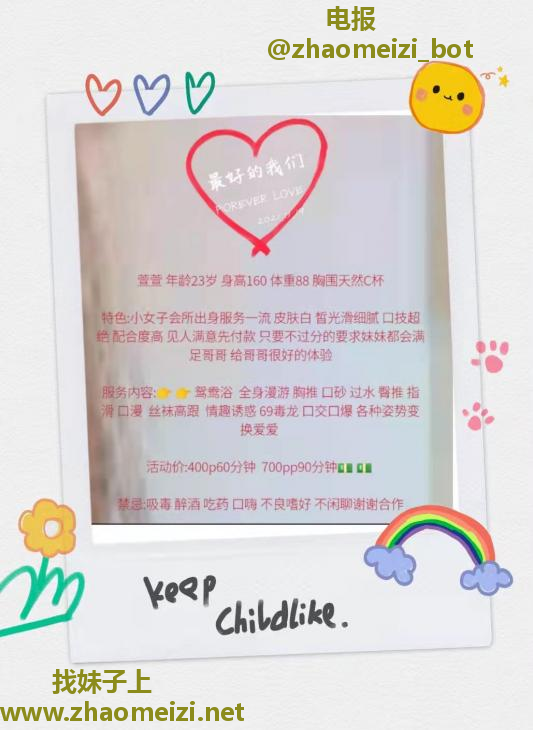 电报
@zhaomeizi_bot
最好的我们
FOREVER LOVE
萱萱 年龄23岁 身高160 体重88 胸围天然C杯
特色:小女子会所出身服务一流 皮肤白 皙光滑细腻 口技超
绝 配合度高 见人满意先付款 只要不过分的要求妹妹都会满
足哥哥 给哥哥很好的体验
服务内容:👉 👉 鸳鸯浴 全身漫游 胸推 口砂 过水 臀推 指
滑 口漫 丝袜高跟 情趣诱惑 69毒龙 口交口爆 各种姿势变
换爱爱
活动价:400p60分钟 700pp90分钟💵 💵
禁忌:吸毒 醉酒 吃药 口嗨 不良嗜好 不闲聊谢谢合作
keep
childlike.
找妹子上
www.zhaomeizi.net